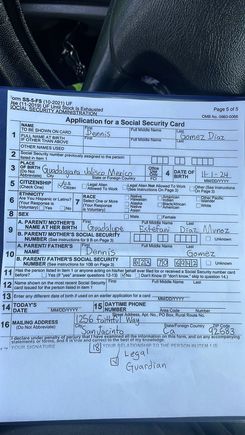 Form SS-5-FS (10-2021) UF
Use (11-2019) UF Until Stock Is Exhausted
SOCIAL SECURITY ADMINISTRATION
Page 5 of 5
OMB No. 0960-0066
Application for a Social Security Card
1 NAME TO BE SHOWN ON CARD First Dennis Full Middle Name Last Gomez Diaz
FULL NAME AT BIRTH IF OTHER THAN ABOVE First Full Middle Name Last
OTHER NAMES USED
2 Social Security number previously assigned to the person listed in item 1
3 PLACE OF BIRTH (Do Not Abbreviate) Guadalajara Jalisco Mexico
4 DATE OF BIRTH 11-1-24 MM/DD/YYYY
5 CITIZENSHIP (Check One) U.S. Citizen Legal Alien Allowed To Work Legal Alien Not Allowed To Work (See Instructions On Page 3) Other (See Instructions On Page 3)
6 ETHNICITY Are You Hispanic or Latino? (Your Response is Voluntary) Yes No
7 RACE Select One or More (Your Response is Voluntary) Native Hawaiian Alaska Native Asian American Indian Black/African American White
8 SEX Male Female
9 A. PARENT/ MOTHER'S NAME AT HER BIRTH First Guadalupe Full Middle Name Estefani Last Diaz Munoz
B. PARENT/ MOTHER'S SOCIAL SECURITY NUMBER (See instructions for 9B on Page 3) Unknown
10 A. PARENT/ FATHER'S NAME First Dennis Full Middle Name Last Gomez
B. PARENT/ FATHER'S SOCIAL SECURITY NUMBER (See instructions for 10B on Page 3) Unknown
11 Has the person listed in item 1 or anyone acting on his/her behalf ever filed for or received a Social Security number card before?
Yes (If "yes" answer questions 12-13) No Don't Know (If "don't know," skip to question 14.)
12 Name shown on the most recent Social Security card issued for the person listed in item 1 First Full Middle Name Last
13 Enter any different date of birth if used on an earlier application for a card MM/DD/YYYY
14 TODAY'S DATE MM/DD/YYYY
15 DAYTIME PHONE NUMBER Area Code Number
16 MAILING ADDRESS (Do Not Abbreviate) Street Address, Apt. No., PO Box, Rural Route No. 1256 Faithful Way
City San Jacinto State/Foreign Country Ca ZIP Code 92583
I declare under penalty of perjury that I have examined all the information on this form, and on any accompanying statements or forms, and it is true and correct to the best of my knowledge.
17 YOUR SIGNATURE 18 YOUR RELATIONSHIP TO THE PERSON IN ITEM 1 IS:
Legal
Guardian